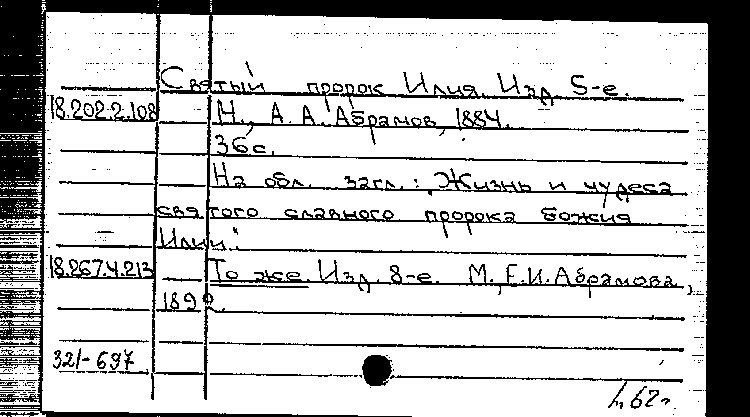 Святый пророк Илия. Изд. 5-е.
18.202.2.108 М., А. А. Абрамов, 1884.
36 с.
На обл. загл.: „Жизнь и чудеса
святого славного пророка божия
Илии."
18.267.4.213 То же. Изд. 8-е. М., Е. И. Абрамова,
1892.
321-697
62г.